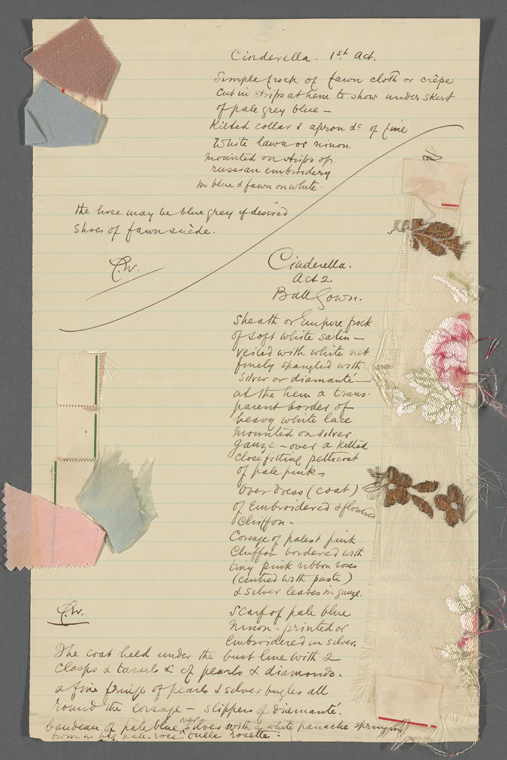 Cinderella. 1st Act.
Simple frock of fawn cloth or crêpe
cut in strips at hem to show under skirt
of pale grey blue —
Kilted collar & apron &c of fine
White lawn or ninon.
mounted on strips of
russian embroidery
in blue & fawn on white.
the hose may be blue grey if desired
Shoes of fawn suède.
C.W.
Cinderella.
Act 2
Ball Gown.
Sheath or Empire frock
of soft white satin —
veiled with white net
finely spangled with
silver or diamanté —
at the hem a trans-
parent border of
heavy white lace
mounted on silver
gauze — over a kilted
close fitting petticoat
of pale pink.
Over dress (coat)
of embroidered & flowered
Chiffon —
Corsage of palest pink
Chiffon bordered with
tiny pink ribbon roses
(centred with paste)
& silver leaves in gauze.
C.W.
Scarf of pale blue
Ninon — printed or
embroidered in silver.
The coat held under the bust line with 2
clasps & tassels &c of pearls & diamonds.
a fine fringe of pearls & silver bugles all
round the corsage — slippers of diamanté.
bandeau of pale blue over silver with a white panache springing
from a big pale rose tulle rosette.